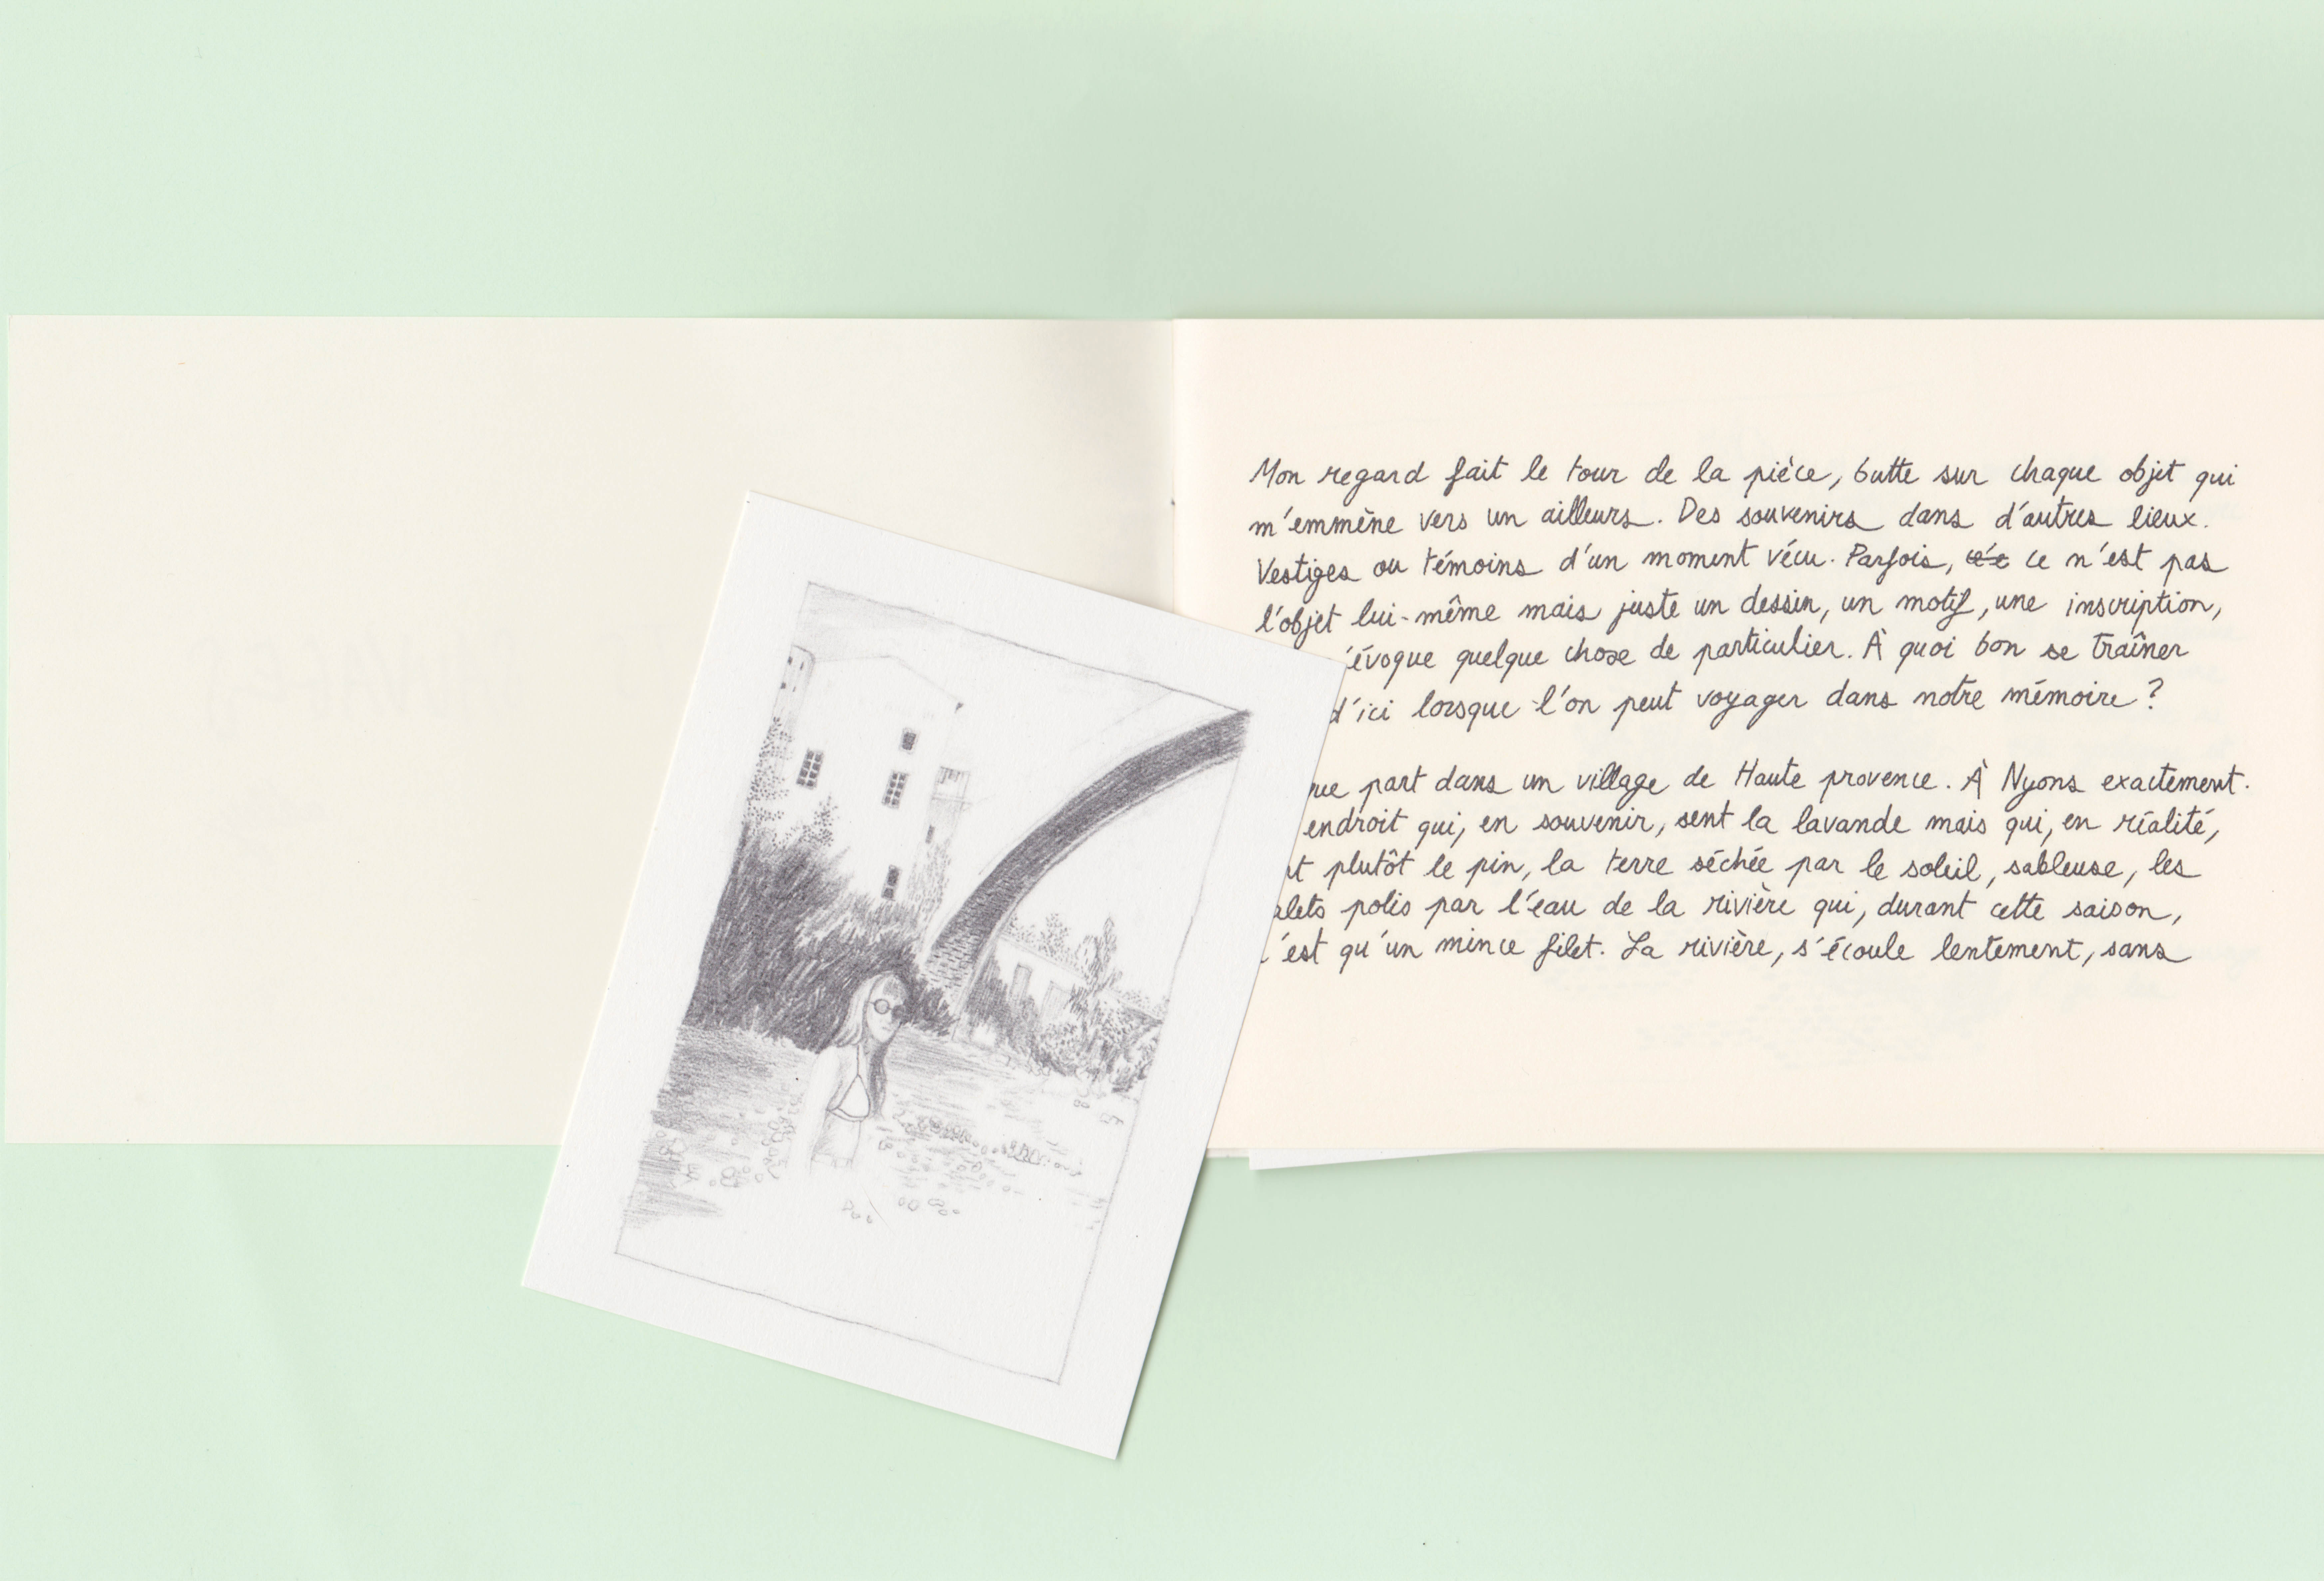 Mon regard fait le tour de la pièce, butte sur chaque objet qui
m'emmène vers un ailleurs. Des souvenirs dans d'autres lieux.
Vestiges ou témoins d'un moment vécu. Parfois, ce n'est pas
l'objet lui-même mais juste un dessin, un motif, une inscription,
'évoque quelque chose de particulier. À quoi bon se traîner
d'ici lorsque l'on peut voyager dans notre mémoire ?
que part dans un village de Haute provence. À Nyons exactement.
endroit qui, en souvenir, sent la lavande mais qui, en réalité,
nt plutôt le pin, la terre séchée par le soleil, sableuse, les
alets polis par l'eau de la rivière qui, durant cette saison,
'est qu'un mince filet. La rivière, s'écoule lentement, sans